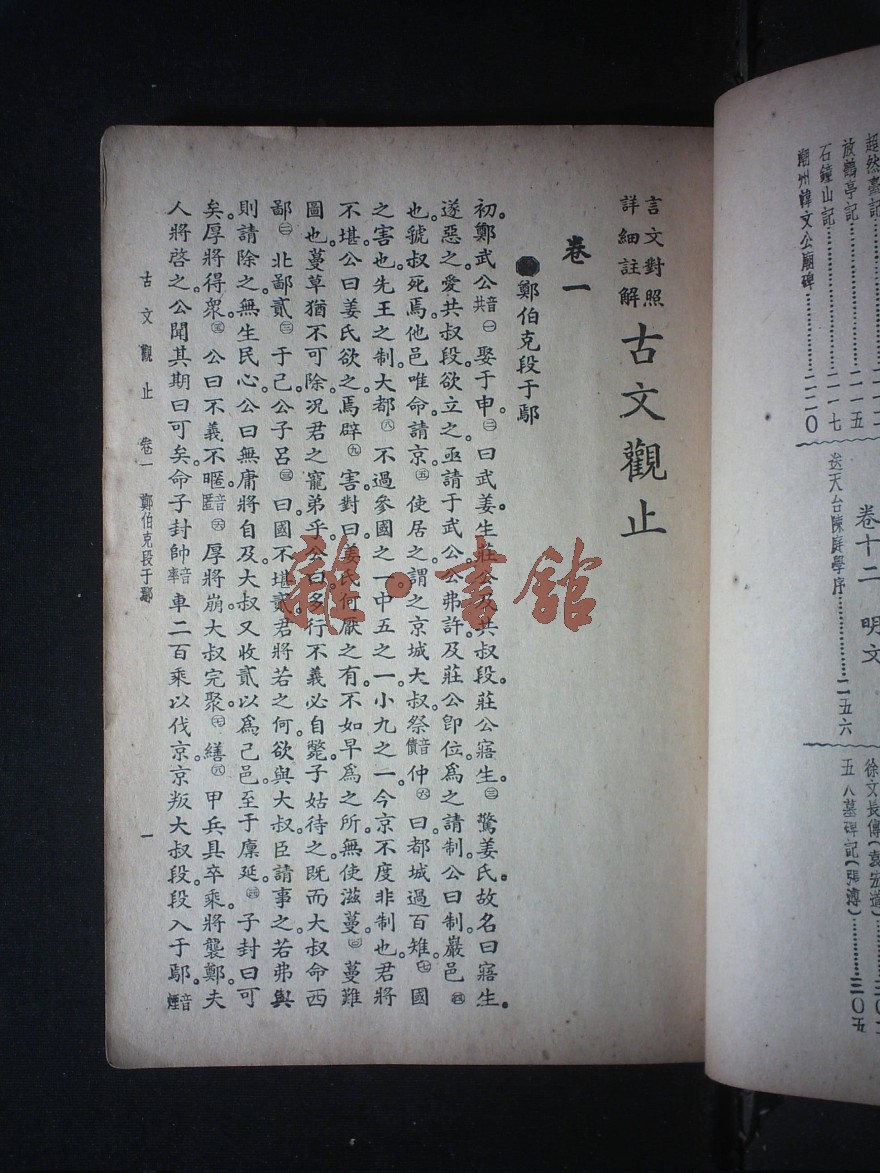 超然臺記
放鶴亭記……二一五
石鐘山記……二一七
潮州韓文公廟碑……二二〇
卷十二 明文
送天台陳庭學序……二五六
徐文長傳(袁宏道)
五人墓碑記(張溥)……三〇五
言文對照
詳細註解
古文觀止
卷一
鄭伯克段于鄢
初。鄭武公音共㊀娶于申㊁曰武姜生莊公及共叔段。莊公寤生。㊂驚姜氏故名曰寤生。
遂惡之。愛共叔段。欲立之。亟請于武公。公弗許。及莊公卽位。爲之請制公曰制。巖邑㊃
也。虢叔死焉。他邑唯命。請京。㊄使居之。謂之京城大叔。祭音債仲㊅曰都城過百雉。㊆國
之害也。先王之制。大都㊇不過參國之一。中五之一。小九之一。今京不度。非制也。君將
不堪。公曰姜氏欲之。焉辟㊈害。對曰姜氏何厭之有。不如早爲之所。無使滋蔓㊉蔓難
圖也。蔓草猶不可除。况君之寵弟乎。公曰。多行不義必自斃。子姑待之。既而大叔命西
鄙北鄙貳于己。公子呂曰國不堪貳。君將若之何。欲與大叔。臣請事之。若弗與
則請除之。無生民心。公曰無庸將自及。大叔又收貳以爲己邑。至于廩延。子封曰可
矣。厚將得衆。公曰不義不暱音匿厚將崩。大叔完聚。繕甲兵。具卒乘。將襲鄭。夫
人將啓之。公聞其期曰可矣。命子封帥音率車二百乘以伐京。京叛大叔段。段入于鄢。音煙
古文觀止 卷一 鄭伯克段于鄢 一
雜·書館